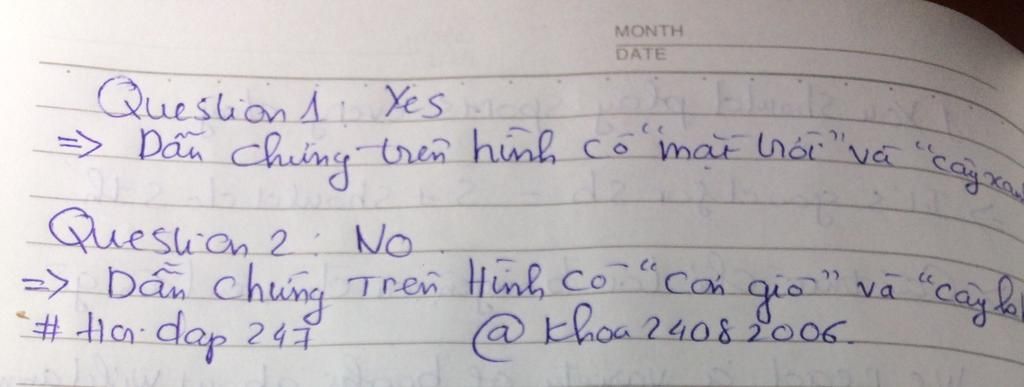 MONTH
DATE
Question 1: Yes
=> Dẫn chứng trên hình có "mặt trời" và "cây xan
Question 2: No
=> Dẫn chứng trên Hình có "Cơn gió" và "cây
# Hoi dap 247 @ Khoa24082006.